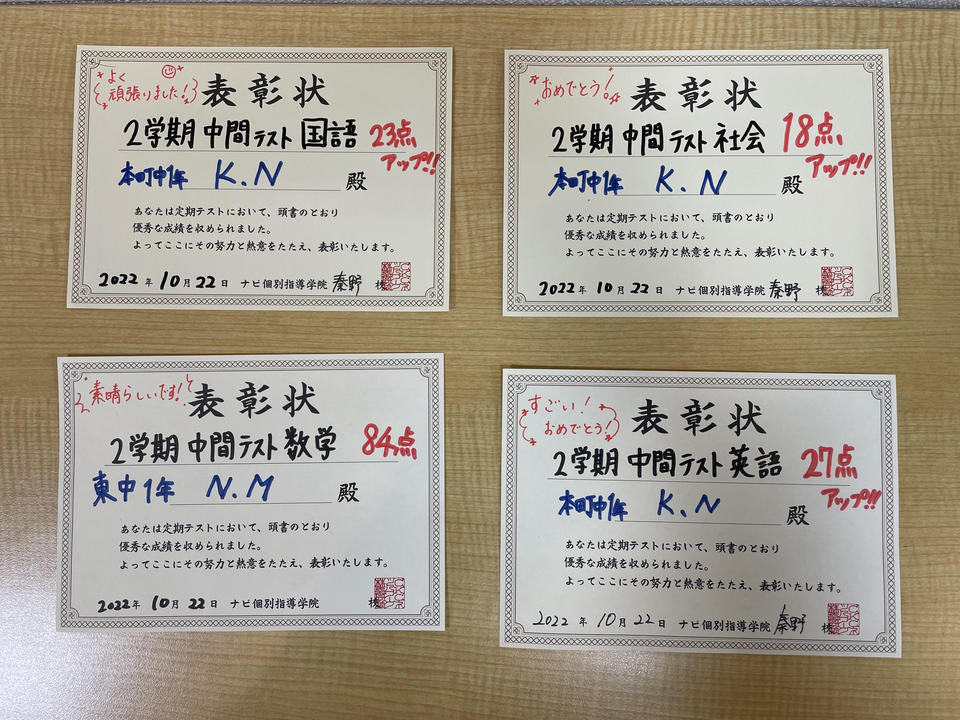 よく
頑張りました!
表彰状
2学期 中間テスト 国語 23点
アップ!!
本町中1年 K.N 殿
あなたは定期テストにおいて、頭書のとおり
優秀な成績を収められました。
よってここにその努力と熱意をたたえ、表彰いたします。
2022年10月22日 ナビ個別指導学院 秦野 校
おめでとう!
表彰状
2学期 中間テスト 社会 18点
アップ!!
本町中1年 K.N 殿
あなたは定期テストにおいて、頭書のとおり
優秀な成績を収められました。
よってここにその努力と熱意をたたえ、表彰いたします。
2022年10月22日 ナビ個別指導学院 秦野 校
素晴らしいです!
表彰状
2学期 中間テスト 数学 84点
東中1年 N.M 殿
あなたは定期テストにおいて、頭書のとおり
優秀な成績を収められました。
よってここにその努力と熱意をたたえ、表彰いたします。
2022年10月22日 ナビ個別指導学院 校
すごい!
おめでとう!
表彰状
2学期 中間テスト 英語 27点
アップ!!
本町中1年 K.N 殿
あなたは定期テストにおいて、頭書のとおり
優秀な成績を収められました。
よってここにその努力と熱意をたたえ、表彰いたします。
2022年10月22日 ナビ個別指導学院 秦野 校